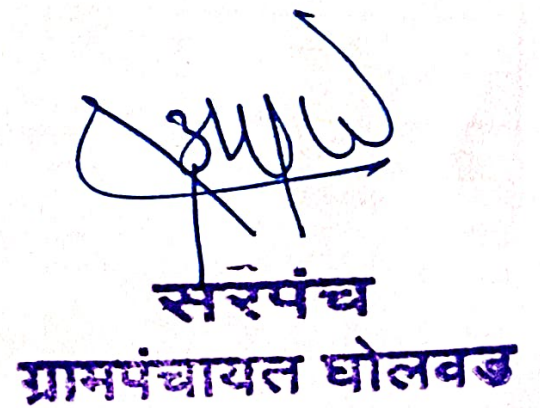 सरपंच
ग्रामपंचायत घोलवड